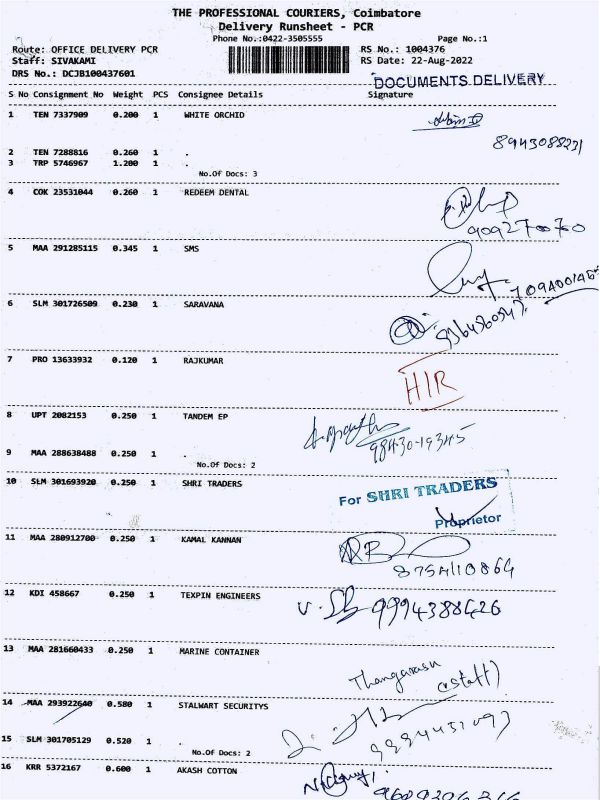 THE PROFESSIONAL COURIERS, Coimbatore
Delivery Runsheet - PCR
Phone No.:0422-3505555 Page No.:1
Route: OFFICE DELIVERY PCR RS No.: 1004376
Staff: SIVAKAMI RS Date: 22-Aug-2022
DRS No.: DCJB100437601
DOCUMENTS DELIVERY
S No Consignment No Weight PCS Consignee Details Signature
1 TEN 7337909 0.200 1 WHITE ORCHID
8943088231
2 TEN 7288816 0.260 1 .
3 TRP 5746967 1.200 1 .
No.Of Docs: 3
4 COK 23531044 0.260 1 REDEEM DENTAL
5 MAA 291285115 0.345 1 SMS
6 SLM 301726509 0.230 1 SARAVANA
7 PRO 13633932 0.120 1 RAJKUMAR
HIR
8 UPT 2082153 0.250 1 TANDEM EP
98430-19345
9 MAA 288638488 0.250 1 .
No.Of Docs: 2
10 SLM 301693920 0.250 1 SHRI TRADERS
For SHRI TRADERS
Proprietor
11 MAA 280912700 0.250 1 KAMAL KANNAN
8754110864
12 KDI 458667 0.250 1 TEXPIN ENGINEERS
9994388426
13 MAA 281660433 0.250 1 MARINE CONTAINER
Thangarasu
(staff)
14 MAA 293922640 0.580 1 STALWART SECURITYS
15 SLM 301705129 0.520 1 .
No.Of Docs: 2
16 KRR 5372167 0.600 1 AKASH COTTON